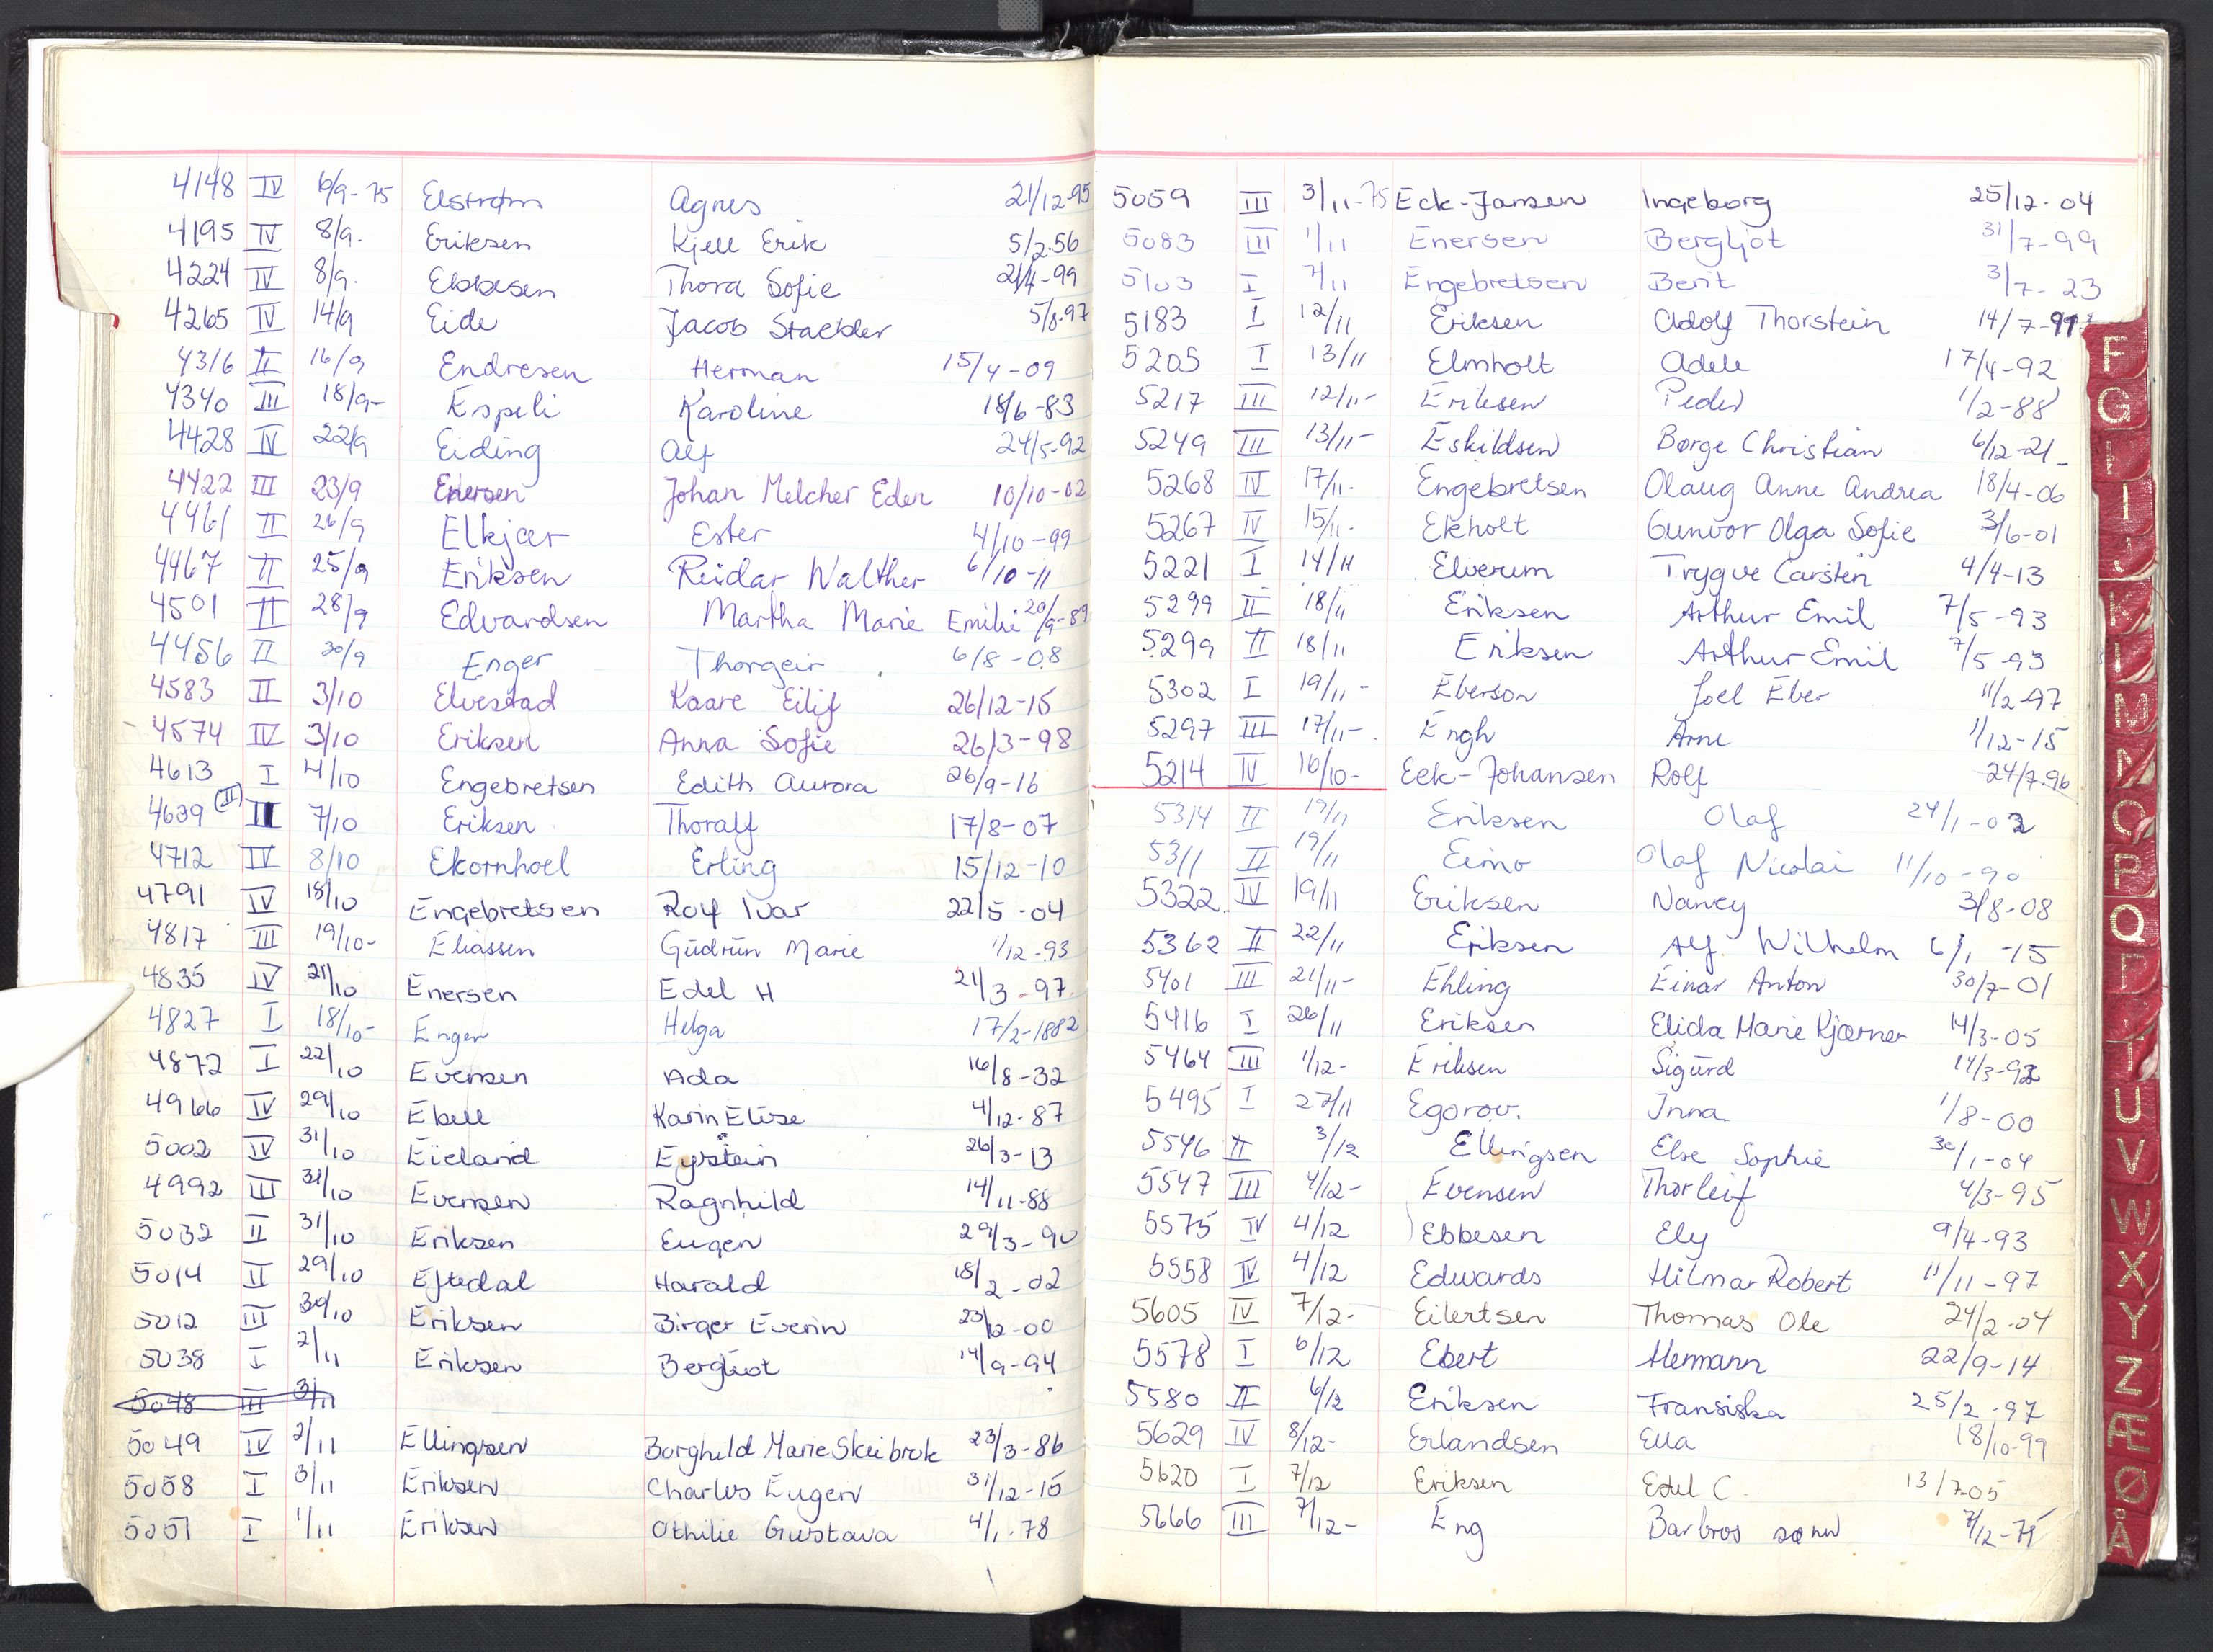 4148 IV 6/9-75 Elstrøm Agnes 21/12-95
4195 IV 8/9. Eriksen Kjell Erik 5/2.56
4224 IV 8/9. Ebbesen Thora Sofie 21/4-99
4265 IV 14/9 Eide Jacob Staebler 5/8-97
4316 II 16/9 Endresen Herman 15/4-09
4340 III 18/9- Espeli Karoline 18/6-83
4428 IV 22/9 Eiding Alf 24/5-92
4422 III 23/9 Johan Melcher Eden 10/10-02
4461 II 26/9 Elkjær Ester 4/10-99
4467 II 25/9 Eriksen Reidar Walther 6/10-11
4501 II 28/9 Edvardsen Martha Marie Emilie 20/9-89
4456 II 30/9 Enger Thorgeir 6/8-08
4583 II 3/10 Elvestad Kaare Eilif 26/12-15
4574 IV 3/10 Eriksen Anna Sofie 26/3-98
4613 I 4/10 Engebretsen Edith Aurora 26/9-16
4639 (II) II 7/10 Eriksen Thoralf 17/8-07
4712 IV 8/10 Ekornhoel Erling 15/12-10
4791 IV 18/10 Engebretsen Rolf Ivar 22/5-04
4817 III 19/10- Eliassen Gudrun Marie 1/12-93
4835 IV 21/10 Enersen Edel H 21/3-97
4827 I 18/10- Enger Helga 17/2-1882
4872 I 22/10 Evensen Ada 16/8-32
4966 IV 29/10 Ebell Karin Elise 4/12-87
5002 IV 31/10 Eieland Eystein 26/3-13
4992 III 31/10 Evensen Ragnhild 14/11-88
5032 II 31/10 Eriksen Eugen 29/3-90
5014 II 29/10 Eftedal Harald 18/2-02
5012 III 30/10 Eriksen Birger Everin 23/12-00
5038 I 2/11 Eriksen Bergliot 14/9-94
5048 III 3/11
5049 IV 2/11 Ellingsen Borghild Marie Skeibrok 23/3-86
5058 I 3/11 Eriksen Charles Eugen 31/12-15
5051 I 1/11 Eriksen Othilie Gustava 4/1-78
5059 III 3/11-75 Eck-Jansen Ingeborg 25/12-04
5083 III 1/11 Enersen Bergljot 31/7-99
5103 I 7/11 Engebretsen Berit 3/7-23
5183 I 12/11 Eriksen Adolf Thorstein 14/7-91
5205 I 13/11 Elmholt Adele 17/4-92
5217 III 12/11- Eriksen Peder 1/2-88
5249 III 13/11- Eskildsen Børge Christian 6/12-21
5268 IV 17/11- Engebretsen Olaug Anne Andrea 18/4-06
5267 IV 15/11- Ekholt Gunvor Olga Sofie 3/6-01
5221 I 14/11 Elverum Trygve Carsten 4/4-13
5299 II 18/11 Eriksen Arthur Emil 7/5-93
5299 II 18/11 Eriksen Arthur Emil 7/5-93
5302 I 19/11- Eberson Joel Eber 11/2-97
5297 III 17/11- Engh Arne 1/12-15
5214 IV 10/10- Eek-Johansen Rolf 24/7-96
5314 II 19/11 Eriksen Olaf 24/1-02
5311 II 19/11 Eimo Olaf Nicolai 11/10-90
5322 IV 19/11 Eriksen Nancy 3/8-08
5362 II 22/11 Eriksen Alf. Wilhelm 6/1-15
5401 III 21/11- Ehling Einar Anton 30/7-01
5416 I 26/11 Eriksen Elida Marie Kjærner 14/3-05
5464 III 1/12- Eriksen Sigurd 14/3-92
5495 I 27/11 Egorov. Inna 1/8-00
5546 II 3/12 Ellingsen Else Sophie 30/1-04
5547 III 4/12- Evensen Thorleif 4/3-95
5575 IV 4/12 Ebbesen Ely 9/4-93
5558 IV 4/12 Edwards Hilmar Robert 11/11-97
5605 IV 7/12- Eilertsen Thomas Ole 24/2-04
5578 I 6/12 Ebert Hermann 22/9-14
5580 II 6/12 Eriksen Fransiska 25/2-97
5629 IV 8/12- Erlandsen Ella 18/10-99
5620 I 7/12 Eriksen Edel C. 13/7-05
5666 III 7/12- Eng Barbros sønn 7/12-75
F
G
I
J
K
L
M
N
O
P
Q
R
T
U
V
W
X
Y
Z
Æ
Ø
Å